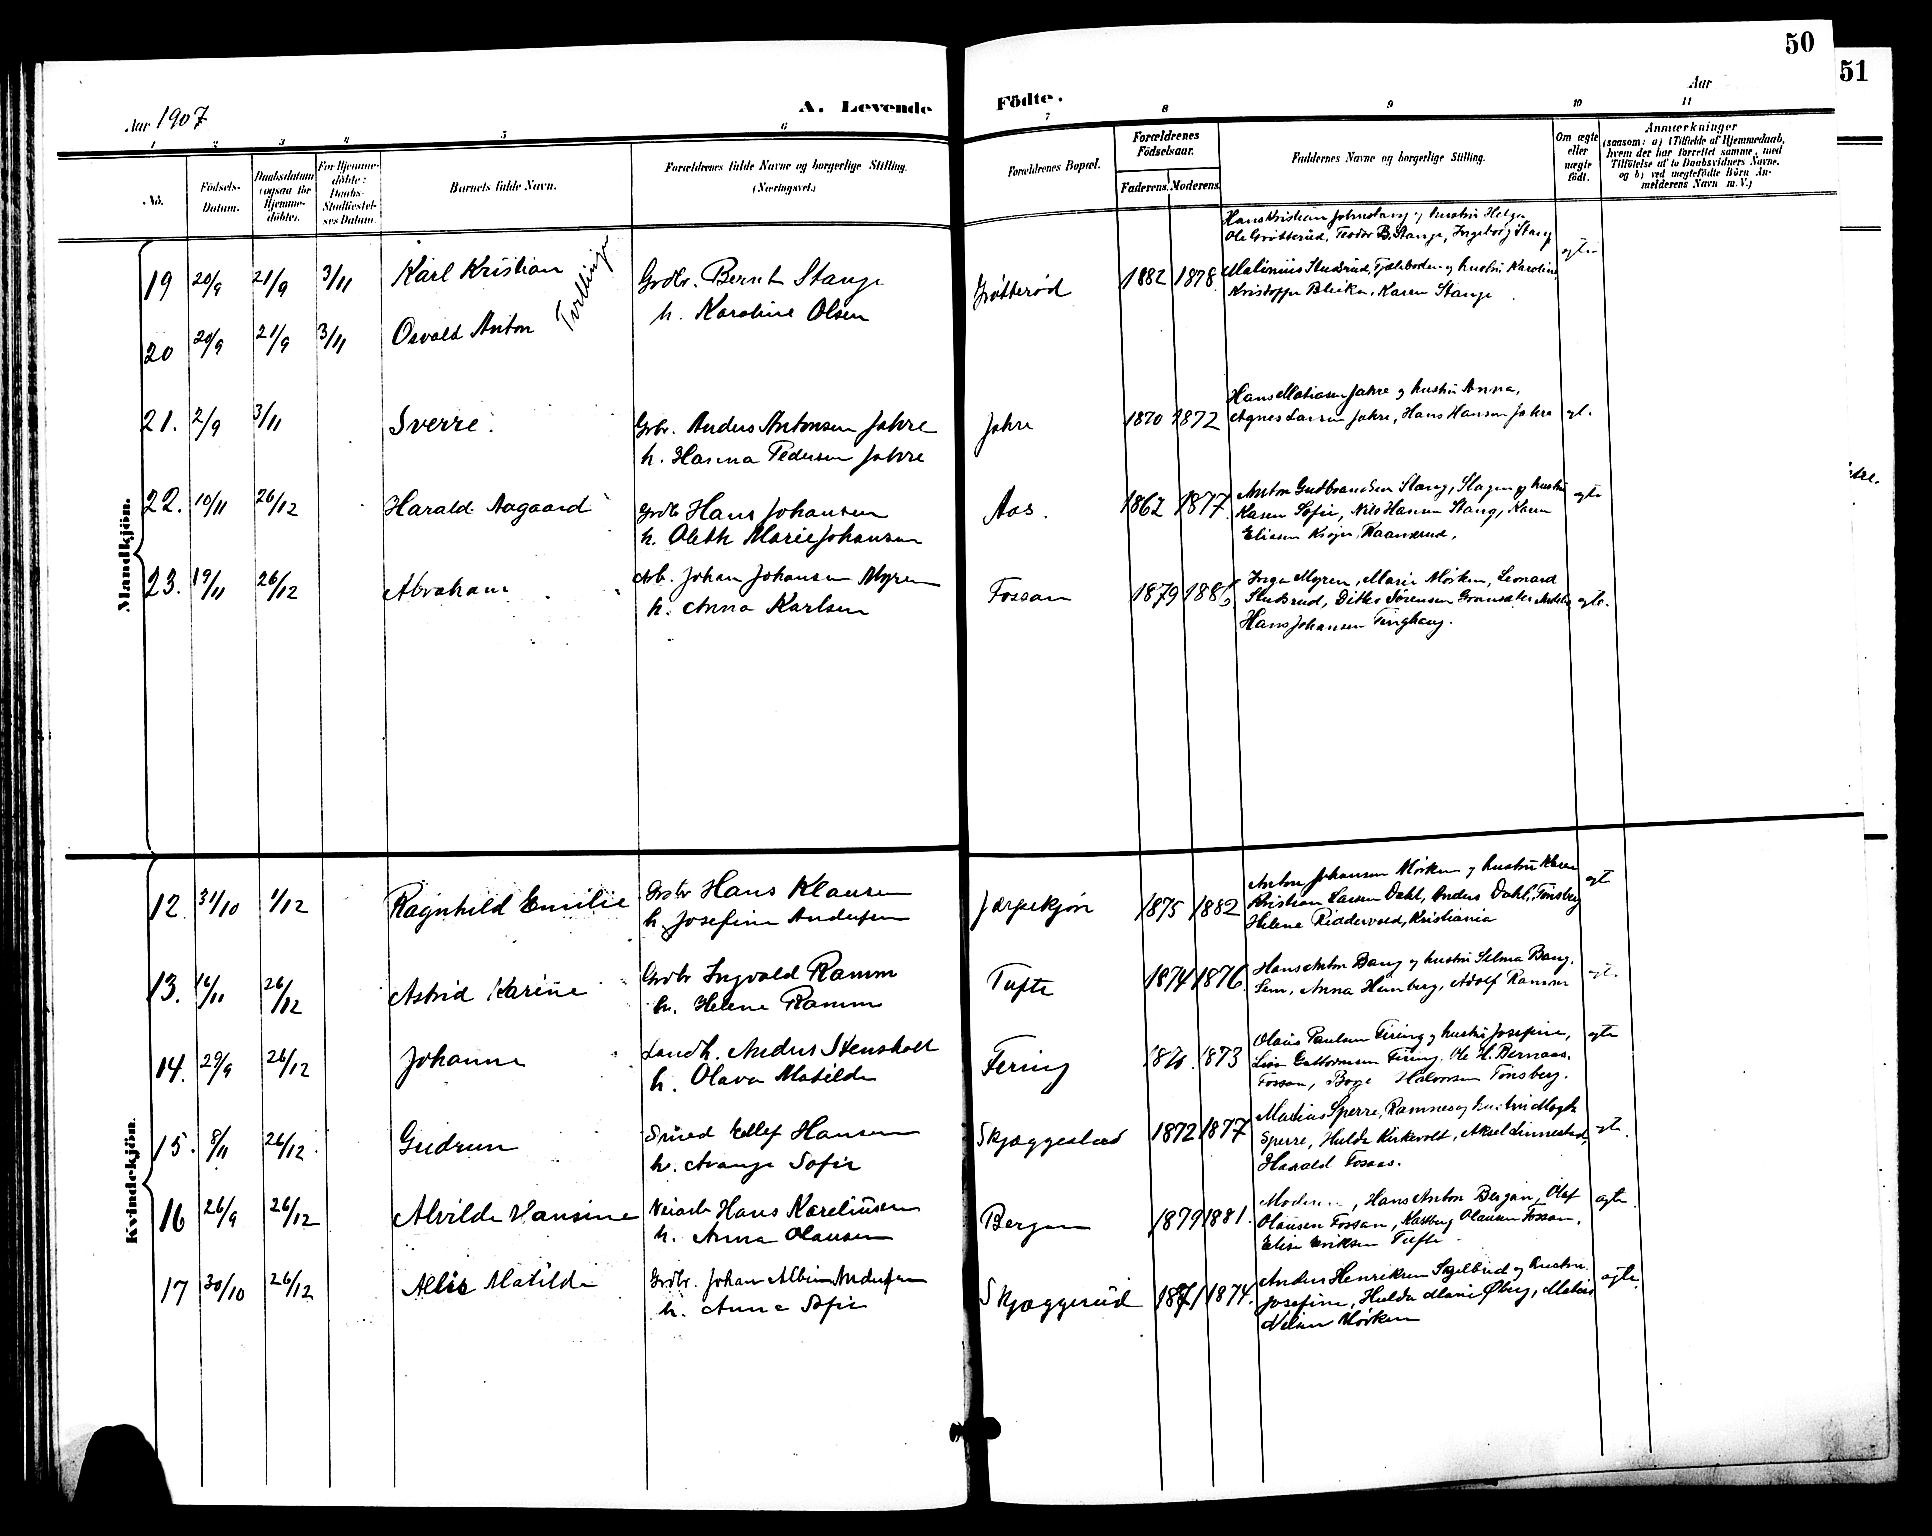 50
51
Aar 1907
A. Levende Födte.
Aar
1 2 3 4 5 6 7 8 9 10 11
No.
Födsels-Datum.
Daabsdatum (ogsaa for Hjemme-döbte).
For Hjemme-döbte: Daabs-Stadfæstel-ses Datum.
Barnets fulde Navn.
Forældrenes fulde Navne og borgerlige Stilling. (Næringsvei.)
Forældrenes Bopæl.
Forældrenes Födselsaar.
Faderens. Moderens.
Faddernes Navne og borgerlige Stilling.
Om ægte eller uægte födt.
Anmærkninger
(saasom: a) i Tilfælde af Hjemmedaab,
hvem der har forrettet samme, med
Tilföielse af to Daabsvidners Navne.
og b) ved uægtefödte Börn An-
melderens Navn m. V.)
Mandkjön.
Hans Kristian Johns Stang og hustru Helga
Ole Grøtterud, Teodor B. Stange, Ingeborg Stang
19 20/9 21/9 3/11 Karl Kristian Tvillinge Grdbr. Bernt Stange Grøtterød 1882 1878 Malinius Studsrud, Fjæleboden og hustru Karoline ægte
h. Karoline Olsen Kristoffer Bleiker, Karen Stange
20 20/9 21/9 3/11 Osvald Anton
Hans Matiasen Jahre og hustru Anna,
21. 2/9 3/11 Sverre. Grbr. Anders Antonsen Jahre Jahre 1870 1872 Agnes Larsen Jahre, Hans Hansen Jahre ægt.
h. Hanna Pedersen Jahre
22. 10/11 26/12 Harald Aagaard Grdb Hans Johansen Aas. 1862 1877 Anton Gudbrandsen Stang, Slagen og hustru ægte
h. Oleth Marie Johansen Karen Sofie, Nils Hansen Stang, Karen
Eliasen Krøge, Raanerud.
23. 19/11 26/12 Abraham Arb. Johan Johansen Myren Fossan 1879 1885 Inga Myren, Marie Mørken, Leonard ægte.
h. Anna Karlsen Studsrud, Ditlev Sørensen Gransæter Andebu
Hans Johansen Tinghaug.
Kvindekjön.
12. 31/10 1/12 Ragnhild Emilie Grdbr Hans Klausen Jærpekjøn 1875 1882 Anton Johansen Mørken og hustru Karen ægt
h. Josefine Andersen Kristian Larsen Dahl, Anders Dahl, Tönsberg
Helene Riddervold, Kristiania
13. 16/11 26/12 Astrid Karine Grdbr Ingvald Ramm Tufte 1874 1876 Hans Anton Bang og hustru Selma Bang. ægt.
h. Helene Ramm Sem, Anna Hemberg, Adolf Ramm
14. 29/9 26/12 Johanne Landh. Anders Stensholt Firing 1870 1873 Olaus Paulsen Firing og hustru Josefine, ægte
h. Olava Matilde Lina Guttormsen Firing. Ole H. Bernaas.
Fossan, Borge Halvorsen Tönsberg.
15. 8/11 26/12. Gudrun Smed Ellef Hansen Skjæggestad 1872 1877 Matias Sperre, Ramnes og hustru Magda ægte.
h. Avange Sofie Sperre, Hulda Kirkevolt, Aksel Linnestad,
Harald Fossaas.
16 26/9 26/12 Alvilde Hansine Veiarb Hans Karelinsen Bergan 1879 1881. Moderen, Hans Anton Bergan, Olaf ægte.
h. Anna Olausen Olausen Fossan, Karsberg Olausen Fossan,
Elise Eriksen Tufte
17 30/10 26/12 Allis Matilde Grdbr. Johan Albin Andersen Skjæggerud 1871 1874. Anders Henriksen Skjelbred og hustru ægte.
h. Anna Sofie Josefine, Hulda Marie Øberg, Matias
Nelsen Mørken